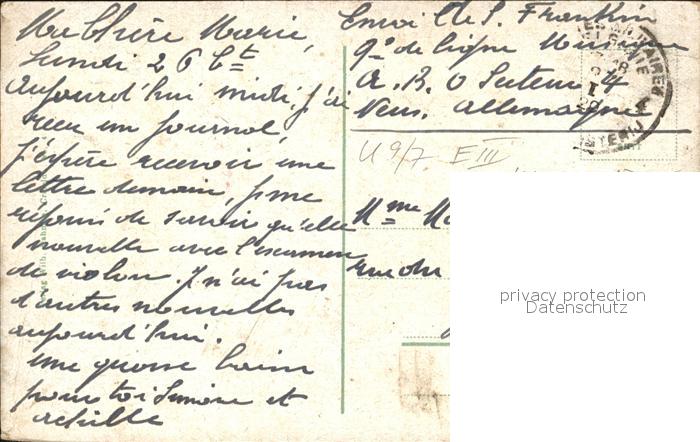 Ma Chère Marie,
Lundi 26 Ct
Aujourd'hui midi, j'ai
recu un journal,
j'espère recevoir une
lettre demain, je me
réjouis de savoir qu'elle
nouvelle avec l'examen
de violon. Je n'ai pas
d'autres nouvelles
aujourd'hui.
Une grosse baise
pour toi Simone et
Achille
Envoi Cl S. Frankin
9e de ligne Musique
A. B. O Secteur 4
Neuss. Allemagne
U 9/7 E III
Mme
rue du
privacy protection
Datenschutz